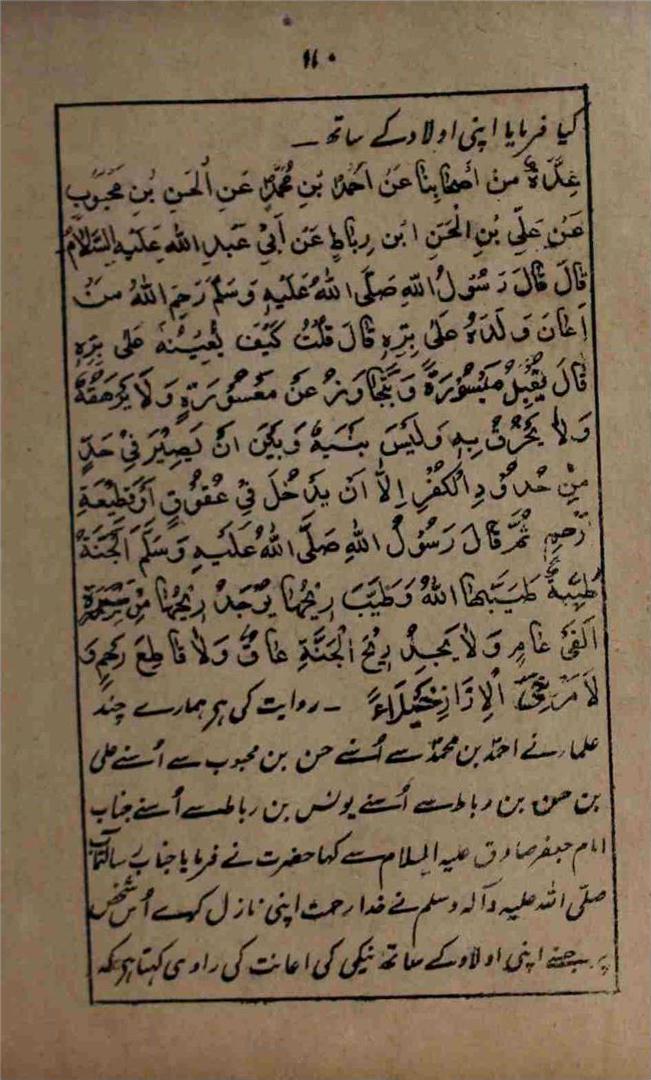 ۱۱۰
کیا فرمایا اپنی اولاد کے ساتھ ـ
عِدَّةٌ مِنْ أَصْحَابِنَا عَنْ اَحْمَدَ بْنِ مُحَمَّدٍ عَنِ الْحَسَنِ بْنِ مَحْبُوبٍ
عَنْ عَلِيِّ بْنِ الْحَسَنِ ابْنِ رِبَاطٍ عَنْ أَبِيْ عَبْدِ اللهِ عَلَيْهِ السَّلَامُ
قَالَ قَالَ رَسُوْلُ اللهِ صَلَّى اللهُ عَلَيْهِ وَسَلَّمَ رَحِمَ اللهُ مَنْ
اَعَانَ وَلَدَهُ عَلٰى بِرِّهِ قَالَ قُلْتُ كَيْفَ يُعِيْنُهُ عَلٰى بِرِّهِ
قَالَ يَقْبَلُ مَيْسُوْرَهٗ وَيَتَجَاوَزُ عَنْ مَعْسُوْرِهٖ وَلَا يُرْهِقُهُ
وَلَا يَخْرُقُ بِهِ وَلَيْسَ بَيْنَهُ وَبَيْنَ اَنْ يَصِيْرَ فِيْ حَدٍّ
مِنْ حُدُوْدِ الْكُفْرِ اِلَّا اَنْ يَدْخُلَ فِيْ عُقُوْقٍ اَوْ قَطِيْعَةِ
رَحِمٍ ثُمَّ قَالَ رَسُوْلُ اللهِ صَلَّى اللهُ عَلَيْهِ وَسَلَّمَ اَلْجَنَّةُ
طَيِّبَةٌ طَيَّبَهَا اللهُ وَطَيَّبَ رِيْحَهَا يُوْجَدُ رِيْحُهَا مِنْ مَسِيْرَةِ
اَلْفَيْ عَامٍ وَلَا يَجِدُ رِيْحَ الْجَنَّةِ عَاقٌّ وَلَا قَاطِعُ رَحِمٍ وَ
لَا مُرْخِي الْاِزَارِ خُيَلَاءً ـ روایت کی ہر ہمارے چند
علمار نے احمد بن محمد سے اُسنے حسن بن محبوب سے اُسنے علی
بن حسن بن رباط سے اُسنے یونس بن رباط سے اُسنے جناب
امام جعفر صادق علیہ السلام سے کہا حضرت نے فرمایا جناب رسالتمآب
صلّی اللہ علیہ وآلہ وسلم نے خدا رحمت اپنی نازل کرے اُس شخص
پر جسنے اپنی اولاد کے ساتھ نیکی کی اعانت کی راوی کہتا ہر کہ